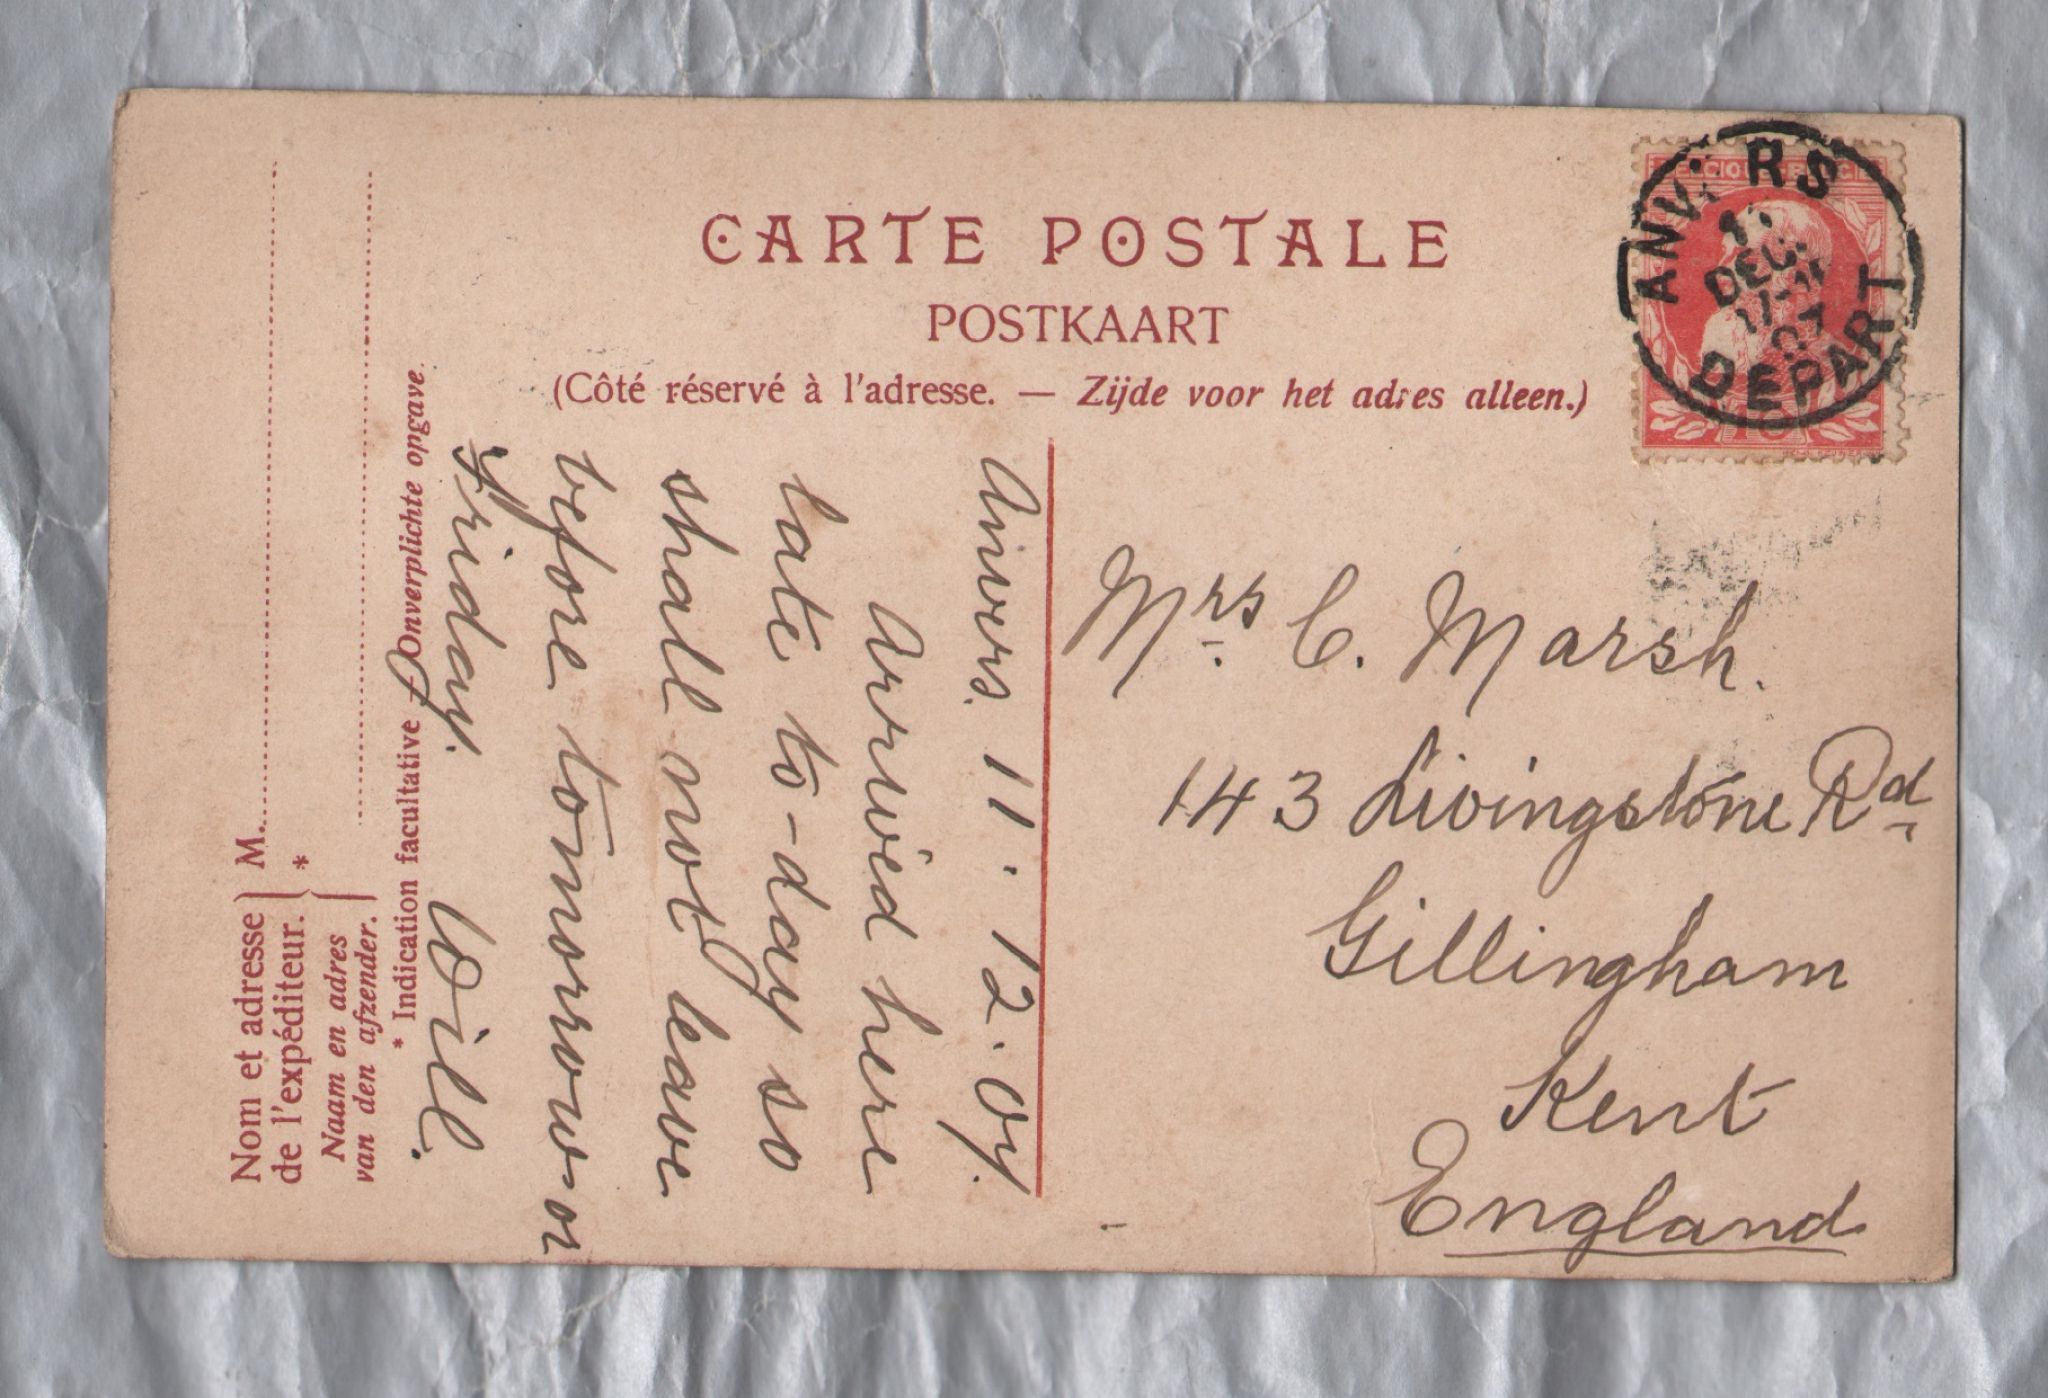 CARTE POSTALE
POSTKAART
(Côté réservé à l'adresse. — Zijde voor het adres alleen.)
ANVERS
DEC.
07
DEPART
Mrs C. Marsh.
143 Livingstone Rd
Gillingham
Kent
England
Anvers. 11.12.07.
Arrived here
late to-day so
shall not leave
before tomorrow or
Friday. Will.
* Indication facultative — Onverplichte opgave.
Nom et adresse
de l'expéditeur.
M.
*
Naam en adres
van den afzender.